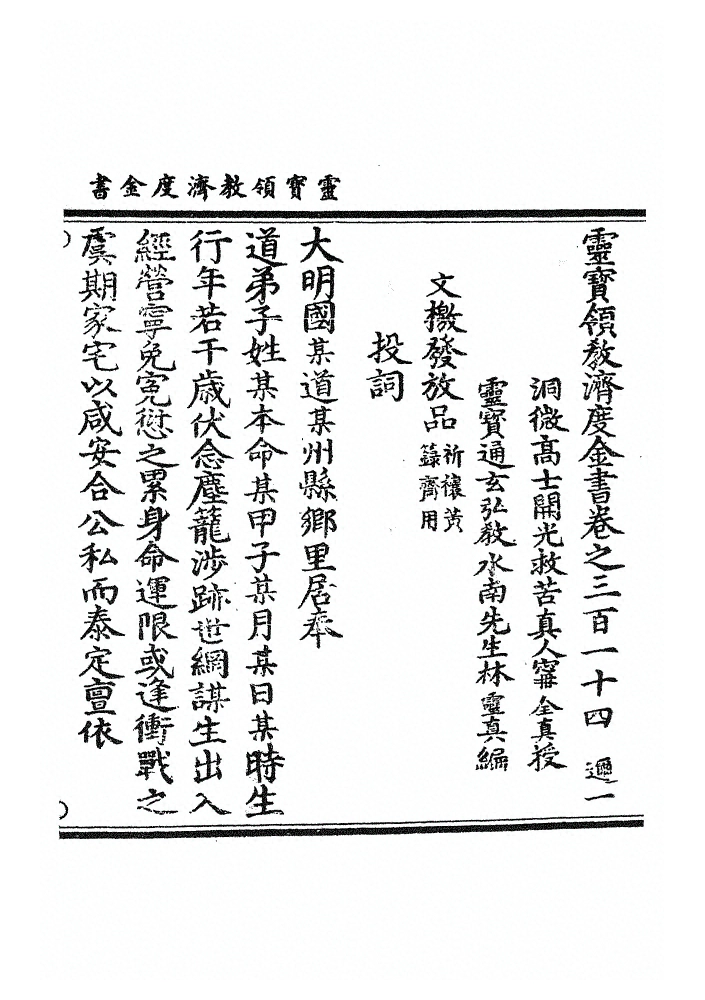 靈寳領教濟度金書
靈寳領教濟度金書卷之三百一十四 邇一
洞微高士開光救苦真人甯全真授
靈寳通玄弘教水南先生林靈真編
文檄發放品 祈禳黃
籙齋用
投詞
大明國某道某州縣鄉里居奉
道弟子姓某本命某甲子某月某日某時生
行年若干歲伏念塵籠涉跡世網謀生出入
經營寧免寃愆之累身命運限或逢衝戰之
虞期家宅以咸安合公私而泰定亶依